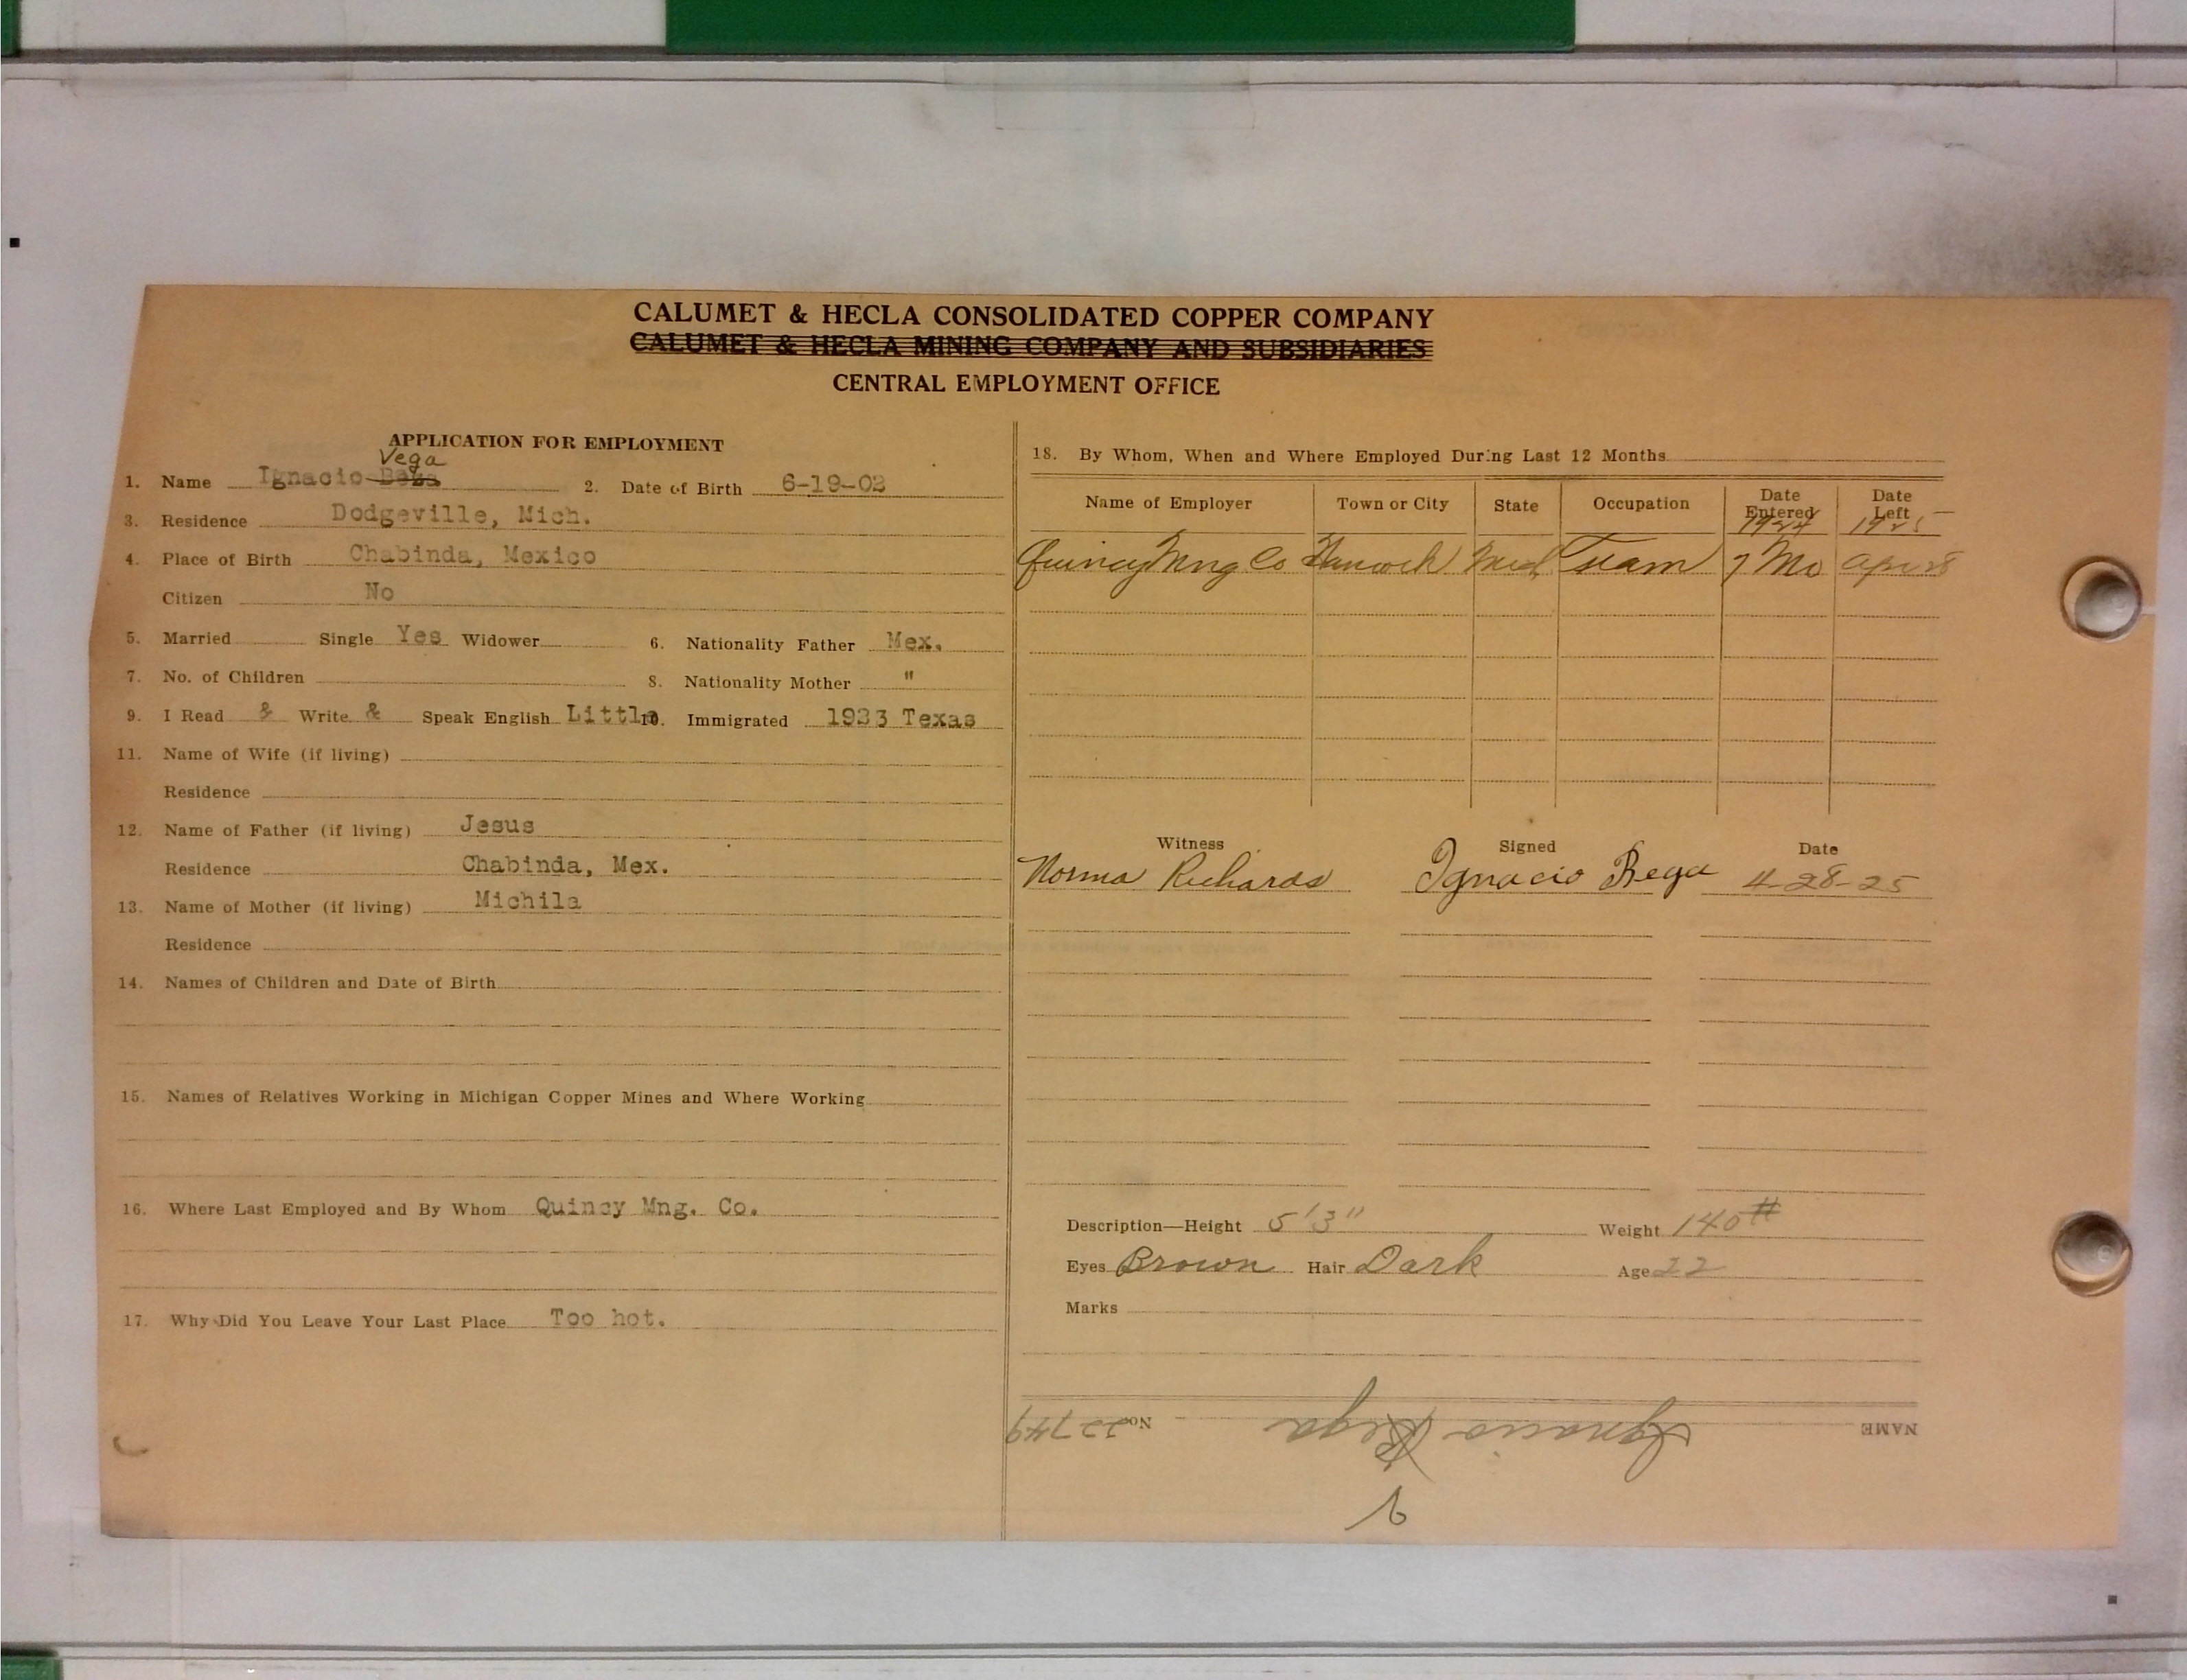 CALUMET & HECLA CONSOLIDATED COPPER COMPANY
CALUMET & HECLA MINING COMPANY AND SUBSIDIARIES
CENTRAL EMPLOYMENT OFFICE
APPLICATION FOR EMPLOYMENT
Vega
1. Name Ignacio 2. Date of Birth 6-19-02
3. Residence Dodgeville, Mich.
4. Place of Birth Chabinda, Mexico
Citizen No
5. Married Single Yes Widower 6. Nationality Father Mex.
7. No. of Children 8. Nationality Mother "
9. I Read & Write & Speak English Little 10. Immigrated 1923 Texas
11. Name of Wife (if living)
Residence
12. Name of Father (if living) Jesus
Residence Chabinda, Mex.
13. Name of Mother (if living) Michila
Residence
14. Names of Children and Date of Birth
15. Names of Relatives Working in Michigan Copper Mines and Where Working
16. Where Last Employed and By Whom Quincy Mng. Co.
17. Why Did You Leave Your Last Place Too hot.
18. By Whom, When and Where Employed During Last 12 Months
Name of Employer Town or City State Occupation Date Entered Date Left
1924 1925
Quincy Mng Co Hancock Mich Tram 7 Mo Apr 28
Witness Signed Date
Norma Richards Ignacio Bega 4-28-25
Description—Height 5'3" Weight 140#
Eyes Brown Hair Dark Age 22
Marks
NAME Ignacio Bega No. 22749